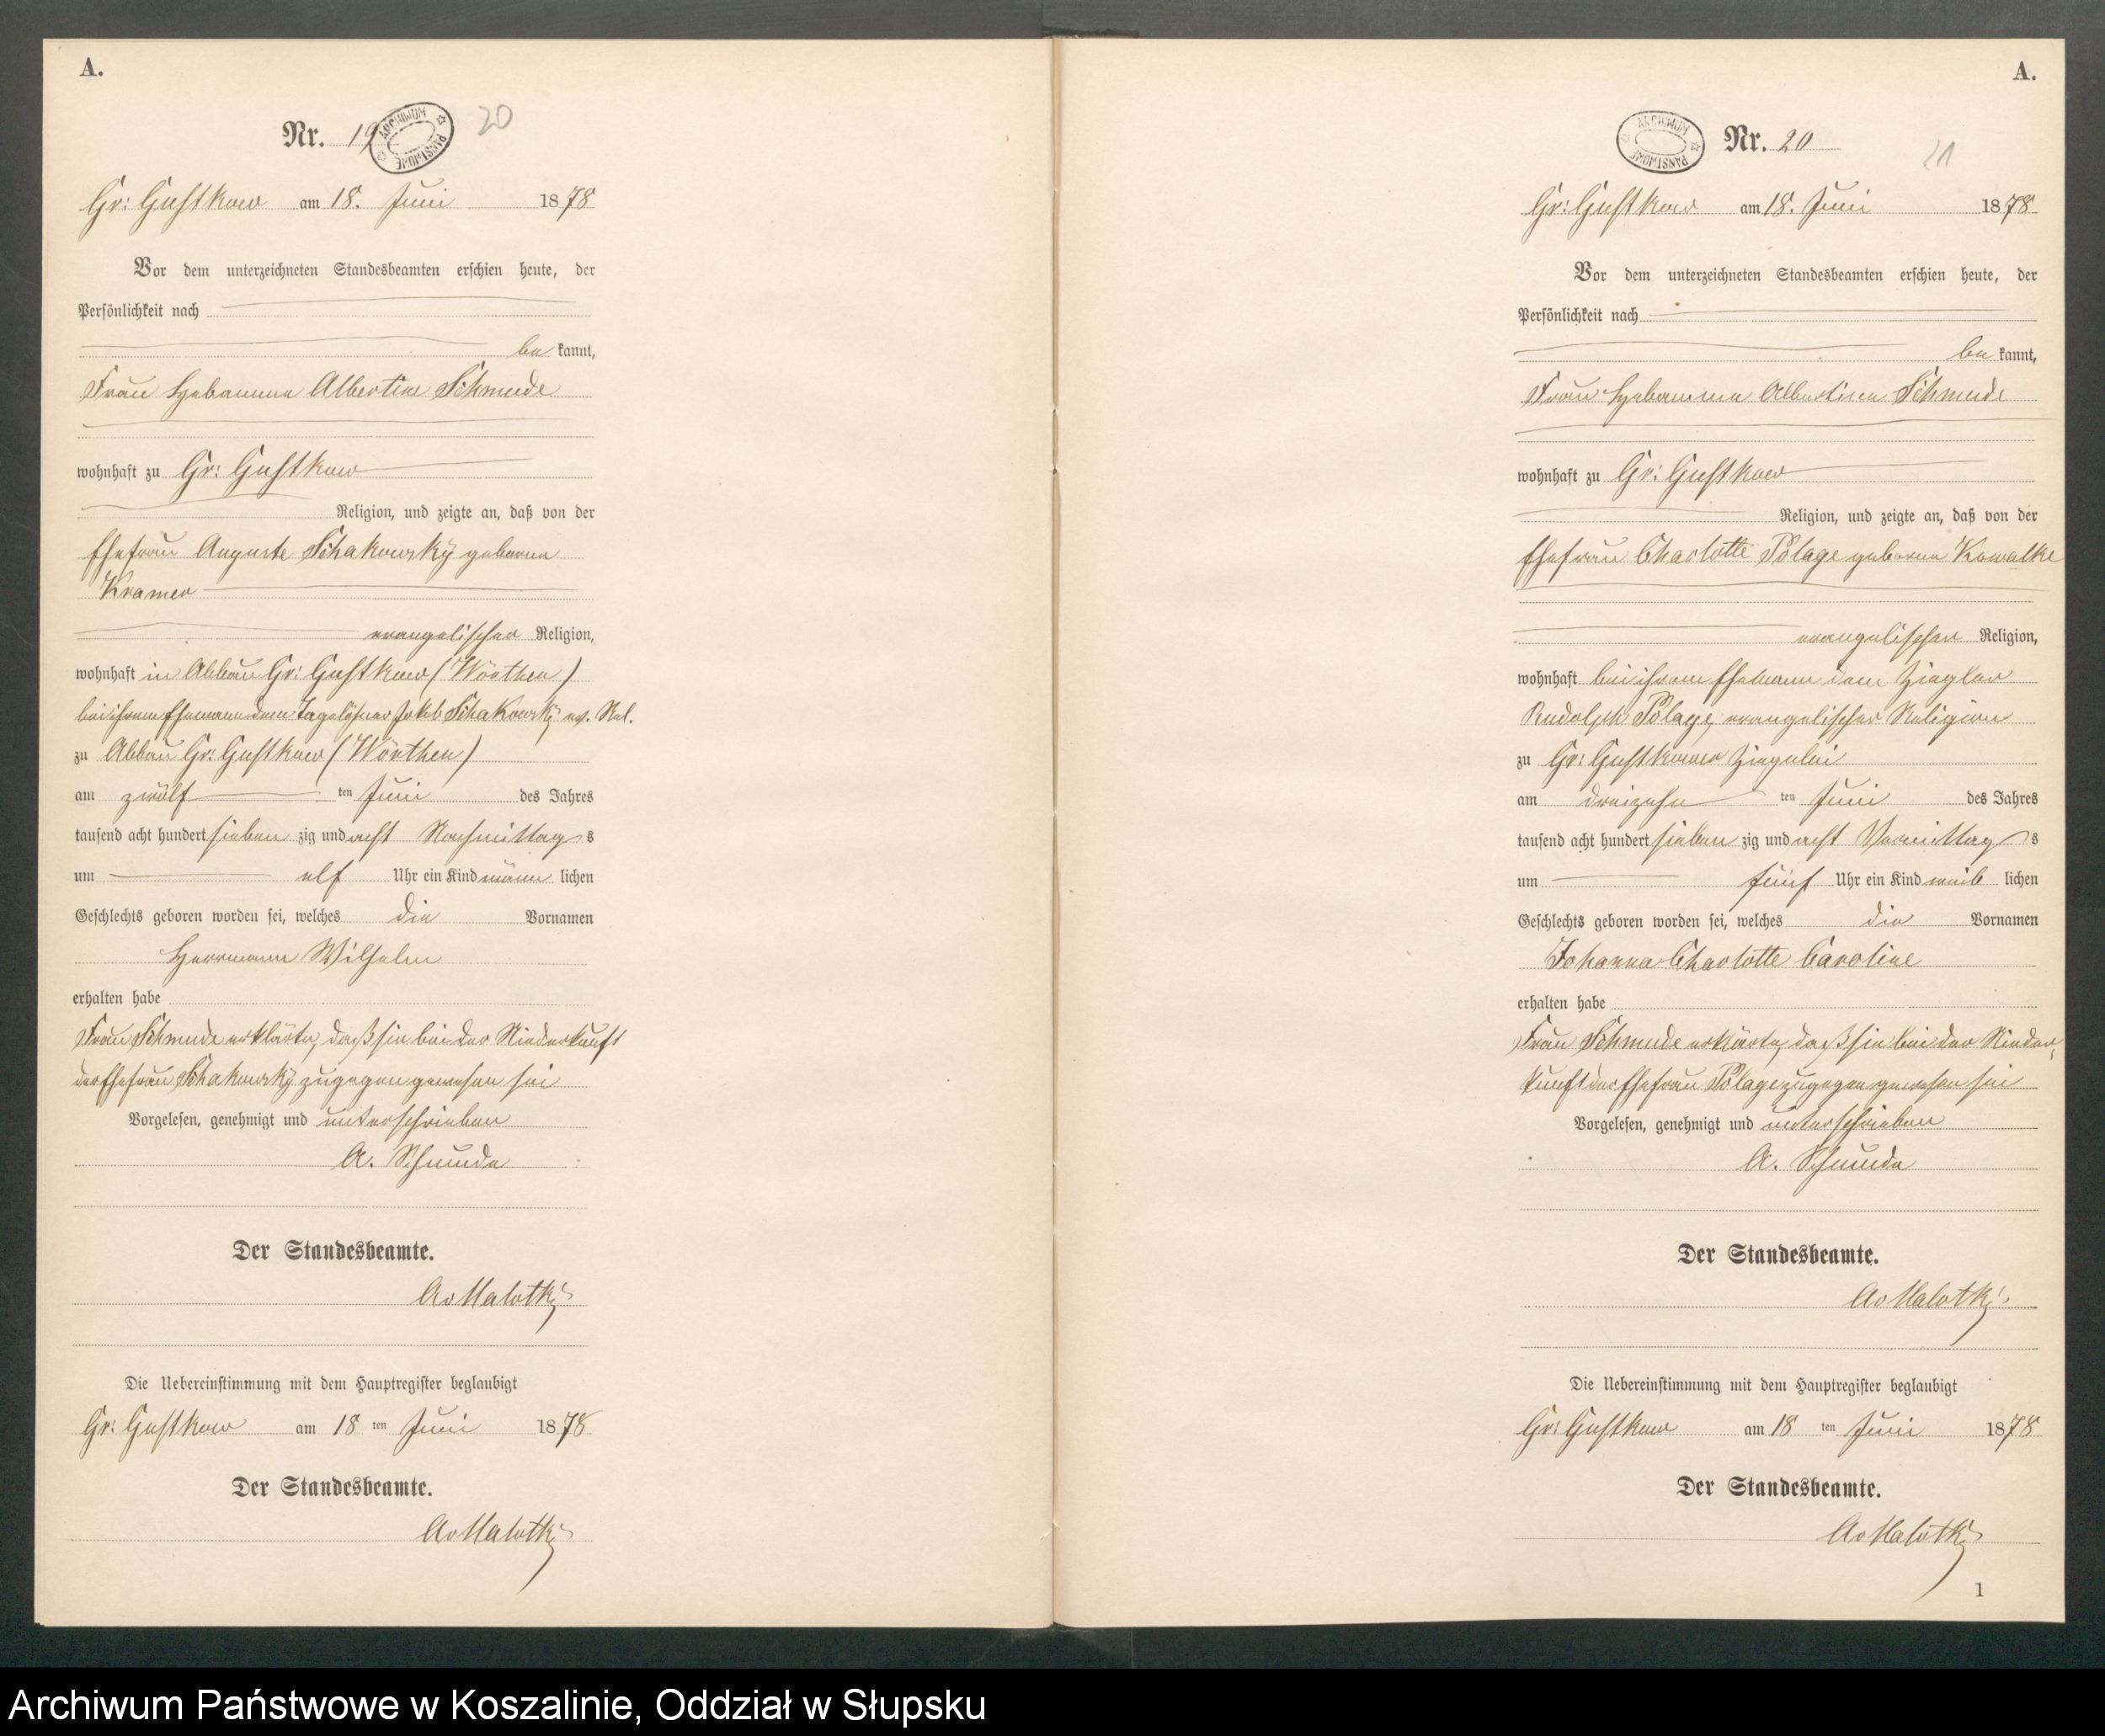 A.
Nr. 19
20
ARCHIWUM PAŃSTWOWE
Gr: Gustkow am 18. Juni 1878
Vor dem unterzeichneten Standesbeamten erschien heute, der
Persönlichkeit nach
be kannt,
Frau Hebamme Albertine Schmude
wohnhaft zu Gr: Gustkow
Religion, und zeigte an, daß von der
Ehefrau Auguste Schakowsky geborene
Kramer
evangelischer Religion,
wohnhaft in Abbau Gr: Gustkow (Wörthen)
bei ihrem Ehemann dem Tagelöhner Jakob Schakowsky ev. Rel.
zu Abbau Gr: Gustkow (Wörthen)
am zwölf ten Juni des Jahres
tausend acht hundert sieben zig und acht Nachmittag s
um elf Uhr ein Kind männ lichen
Geschlechts geboren worden sei, welches die Vornamen
Herrmann Wilhelm
erhalten habe
Frau Schmude erklärte, daß sie bei der Niederkunft
der Ehefrau Schakowsky zugegen gewesen sei
Vorgelesen, genehmigt und unterschrieben
A. Schmude
Der Standesbeamte.
AvMalotki
Die Uebereinstimmung mit dem Hauptregister beglaubigt
Gr: Gustkow am 18 ten Juni 1878
Der Standesbeamte.
AvMalotki
A.
ARCHIWUM PAŃSTWOWE
Nr. 20
21
Gr: Gustkow am 18. Juni 1878
Vor dem unterzeichneten Standesbeamten erschien heute, der
Persönlichkeit nach
be kannt,
Frau Hebamme Albertine Schmude
wohnhaft zu Gr: Gustkow
Religion, und zeigte an, daß von der
Ehefrau Charlotte Polage geborene Kowalke
evangelischer Religion,
wohnhaft bei ihrem Ehemann dem Ziegler
Rudolph Polage, evangelischer Religion
zu Gr: Gustkower Ziegelei
am dreizehn ten Juni des Jahres
tausend acht hundert sieben zig und acht Vormittag s
um fünf Uhr ein Kind weib lichen
Geschlechts geboren worden sei, welches die Vornamen
Johanna Charlotte Caroline
erhalten habe
Frau Schmude erklärte, daß sie bei der Nieder-
kunft der Ehefrau Polage zugegen gewesen sei
Vorgelesen, genehmigt und unterschrieben
A. Schmude
Der Standesbeamte.
AvMalotki
Die Uebereinstimmung mit dem Hauptregister beglaubigt
Gr: Gustkow am 18 ten Juni 1878
Der Standesbeamte.
AvMalotki
1
Archiwum Państwowe w Koszalinie, Oddział w Słupsku